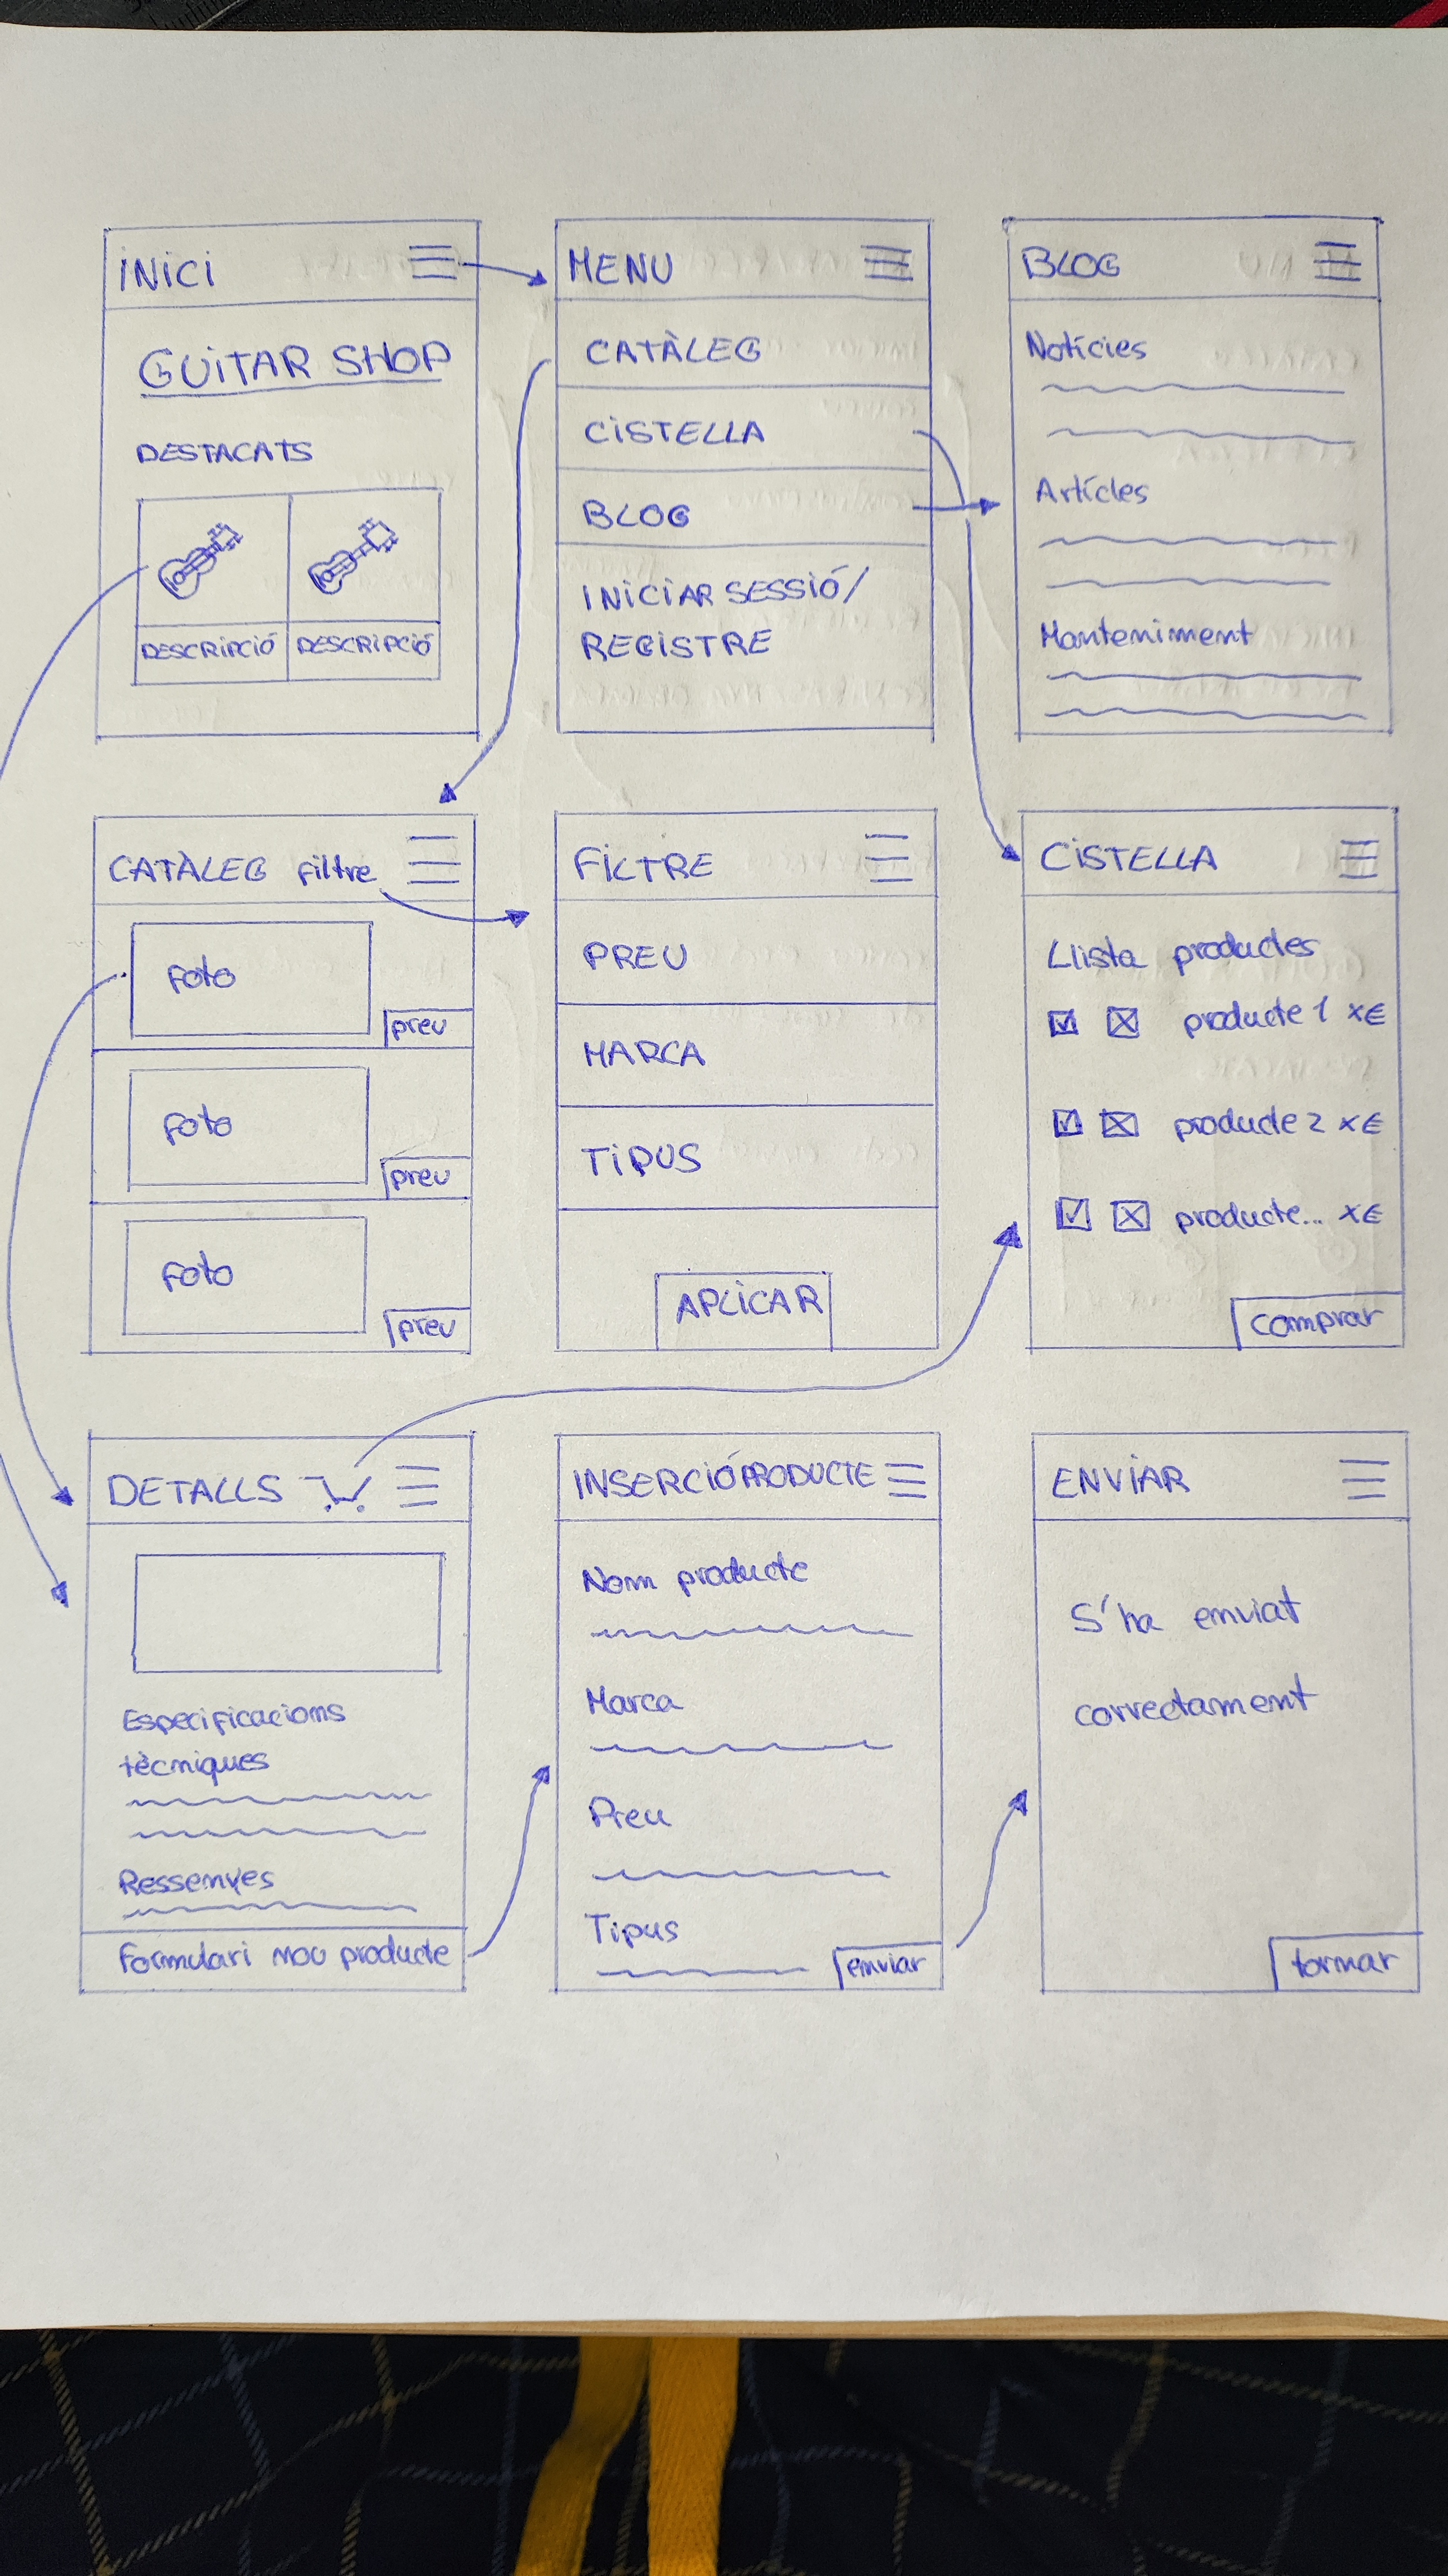 INICI
GUITAR SHOP
DESTACATS
DESCRIPCIÓ DESCRIPCIÓ
MENU
CATÀLEG
CISTELLA
BLOG
INICIAR SESSIÓ/
REGISTRE
BLOG
Notícies
Artícles
Manteniment
CATÀLEG filtre
foto
preu
foto
preu
foto
preu
FILTRE
PREU
MARCA
TIPUS
APLICAR
CISTELLA
Llista productes
producte 1 x€
producte 2 x€
producte... x€
comprar
DETALLS
Especificacions
tècniques
Ressenyes
Formulari nou producte
INSERCIÓ PRODUCTE
Nom producte
Marca
Preu
Tipus
enviar
ENVIAR
S'ha enviat
correctament
tornar